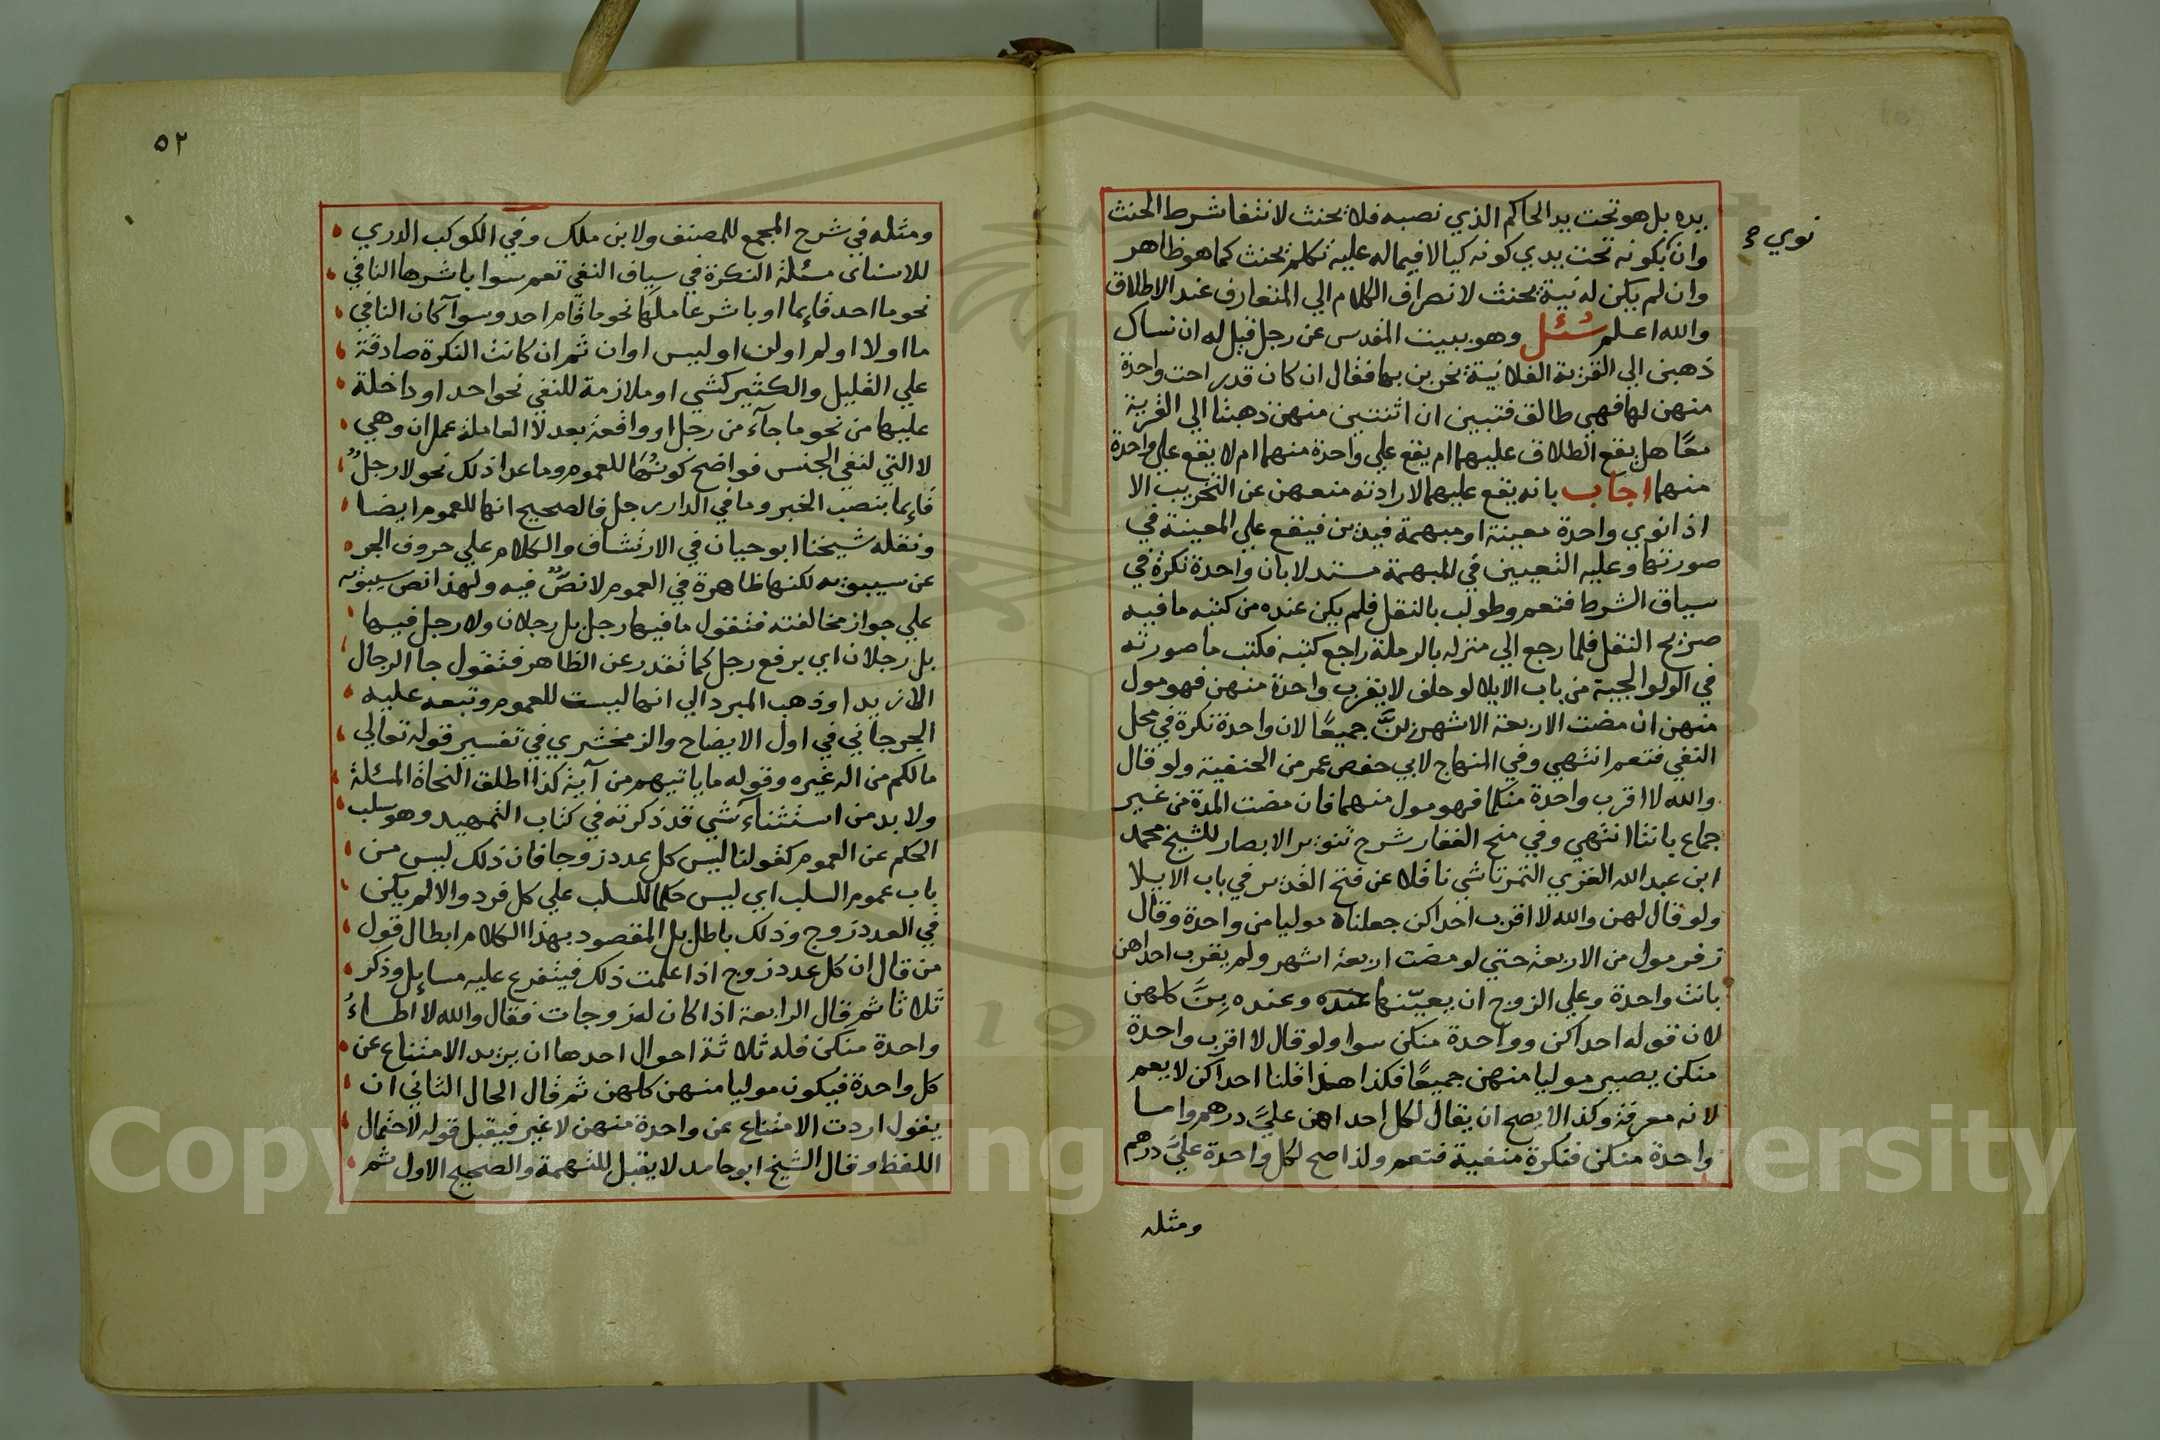 نوي ح
يده بل هو تحت يد الحاكم الذي نصبه فلا يحنث لانتفا شرط الحنث
وان بكونه تحت يدي كونه كيالا فيما له عليه تكلم يحنث كما هو ظاهر
وان لم يكن له نية يحنث لانصراف الكلام الي المتعارف عند الاطلاق
والله اعلم سئل وهو ببيت المقدس عن رجل قيل له ان نساك
ذهبن الي القرية الفلانية نحزبن بها فقال ان كان قد راحت واحدة
منهن لها فهي طالق فتبين ان اثنتين منهن ذهبتا الي القرية
معًا هل يقع الطلاق عليهما ام يقع علي واحدة منهما ام لا يقع علي واحدة
منهما اجاب بانه يقع عليهما لارادته منعهن عن التحزيب الا
اذا نوي واحدة معينة او مبهمة فيدين فيقع علي المعينة في
صورتها وعليه التعيين في المبهمة مستدلا بان واحدة نكرة في
سياق الشرط فتعم وطولب بالنقل فلم يكن عنده من كتبه ما فيه
صريح النقل فلما رجع الي منزله بالرملة راجع كتبه فكتب ما صورته
في الولوالجية من باب الايلا لو حلف لا يقرب واحدة منهن فهو مول
منهن ان مضت الاربعة الاشهر بِنَّ جميعًا لان واحدة نكرة في محل
النفي فتعم انتهي وفي المنهاج لابي حفص عمر من الحنفية ولو قال
والله لا اقرب واحدة منكما فهو مول منهما فان مضت المدة من غير
جماع بانتا انتهي وفي منح الغفار شرح تنوير الابصار للشيخ محمد
ابن عبد الله الغزي التمرتاشي ناقلا عن فتح القدير في باب الايلا
ولو قال لهن والله لا اقرب احداكن جعلناه موليا من واحدة وقال
زفر مول من الاربعة حتي لو مضت اربعة اشهر ولم يقرب احداهن
بانت واحدة وعلي الزوج ان يعيّنها عنده وعنده بِنَّ كلهن
لان قوله احداكن وواحدة منكن سوا ولو قال لا اقرب واحدة
منكن يصير موليا منهن جميعًا فكذا هذا قلنا احداكن لا يعم
لانه معرفة وكذا لا يصح ان يقال لكل احداهن عليَّ درهم واما
واحدة منكن فنكرة منفية فتعم ولذا صح لكل واحدة عليَّ درهم
ومثله
٥٢
ومثله في شرح المجمع للمصنف ولابن ملك وفي الكوكب الدري
للاسناى مسئلة النكرة في سياق النفي تعم سوا باشرها النافي
نحو ما احد قايما او باشر عاملها نحو ما قام احد وسوآ كان النافي
ما او لا او لم او لن او ليس او ان ثم ان كانت النكرة صادقة
علي القليل والكثير كشي او ملازمة للنفي نحو احد او داخلة
عليها من نحو ما جآء من رجل او واقعة بعد لا العاملة عمل ان وهي
لا التي لنفي الجنس فواضح كونها للعموم وما عدا ذلك نحو لا رجلٌ
قايما بنصب الخبر وما في الدار رجل فالصحيح انها للعموم ايضا
ونقله شيخنا ابو حيان في الارتشاف والكلام علي حروف الجر
عن سيبويه لكنها ظاهرة في العموم لا نصٌّ فيه ولهذا نص سيبويه
علي جواز مخالفته فتقول ما فيها رجل بل رجلان ولا رجل فيها
بل رجلان اي برفع رجل كما تقدر عن الظاهر فتقول جا الرجال
الا زيدا وذهب المبرد الي انها ليست للعموم وتبعه عليه
الجرجاني في اول الايضاح والزمخشري في تفسير قوله تعالي
ما لكم من اله غيره وقوله ما ياتيهم من آية كذا اطلق النحاة المسئلة
ولا بد من استثنآء شي قد ذكرته في كتاب التمهيد وهو سلب
الحكم عن العموم كقولنا ليس كل عدد زوجا فان ذلك ليس من
باب عموم السلب اي ليس حكما للسلب علي كل فرد والا لم يكن
في العدد زوج وذلك باطل بل المقصود بهذا الكلام ابطال قول
من قال ان كل عدد زوج اذا علمت ذلك فيتفرع عليه مسايل وذكر
ثلاثا ثم قال الرابعة اذا كان له زوجات فقال والله لا اطاءُ
واحدة منكن فله ثلاثة احوال احدها ان يريد الامتناع عن
كل واحدة فيكون موليا منهن كلهن ثم قال الحال الثاني ان
يقول اردت الامتناع عن واحدة منهن لا غير فيقبل قوله لاحتمال
اللفظ وقال الشيخ ابو حامد لا يقبل للتهمة والصحيح الاول ثم
Copyright © King Saud University